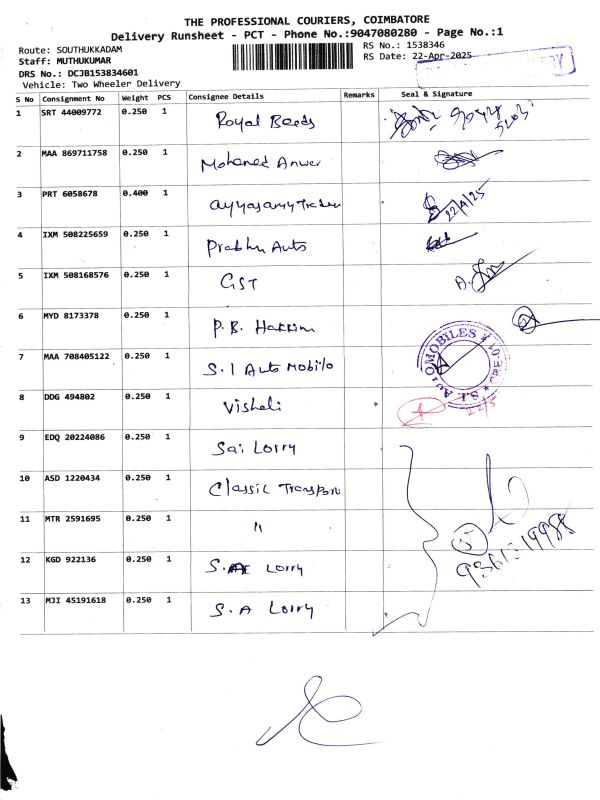 THE PROFESSIONAL COURIERS, COIMBATORE
Delivery Runsheet - PCT - Phone No.:9047080280 - Page No.:1
Route: SOUTHUKKADAM RS No.: 1538346
Staff: MUTHUKUMAR RS Date: 22-Apr-2025
DRS No.: DCJB153834601
Vehicle: Two Wheeler Delivery
S No Consignment No Weight PCS Consignee Details Remarks Seal & Signature
1 SRT 44009772 0.250 1 Royal Beeds
2 MAA 869711758 0.250 1 Mohamed Anwer
3 PRT 6058678 0.400 1 Ayyasamy Traders 22/4/25
4 IXM 508225659 0.250 1 Prabhu Auto
5 IXM 508168576 0.250 1 GST
6 MYD 8173378 0.250 1 P.B. Hakkim
7 MAA 708405122 0.250 1 S.I Auto Mobilo S.I. AUTOMOBILES CBE-01
8 DDG 494802 0.250 1 Vishali
9 EDQ 20224086 0.250 1 Sai Lorry
10 ASD 1220434 0.250 1 Classic Transport
11 MTR 2591695 0.250 1 "
12 KGD 922136 0.250 1 Lorry
13 MJI 45191618 0.250 1 S.A Lorry